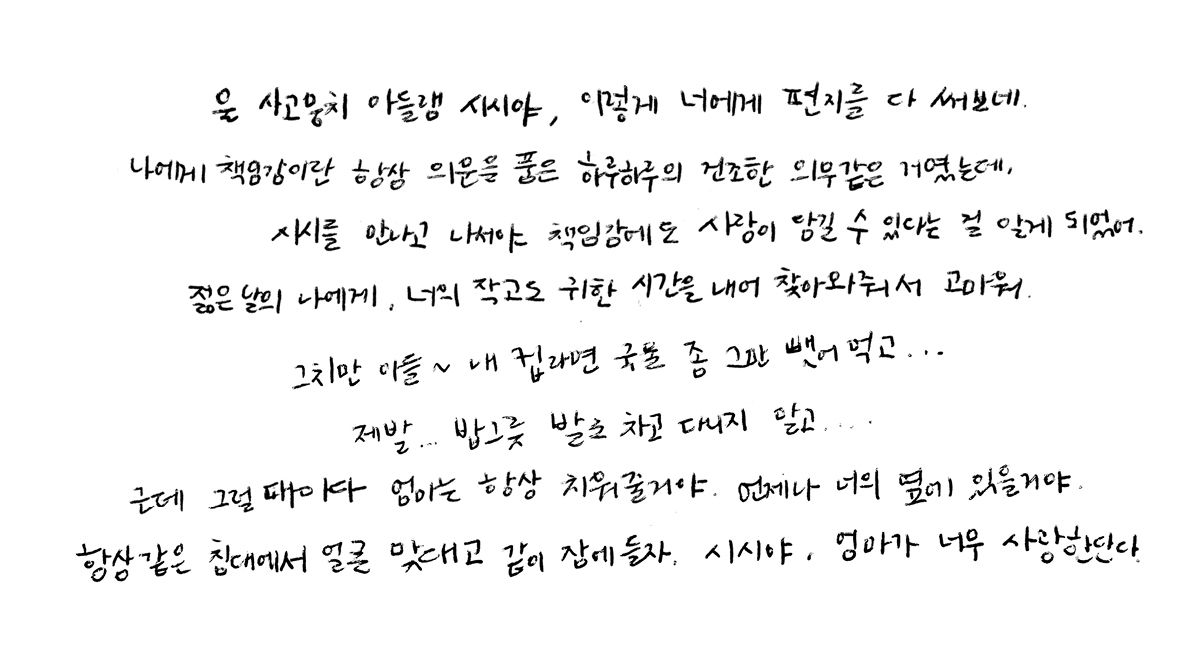 울 사고뭉치 아들램 시시야, 이렇게 너에게 편지를 다 써보네.
나에게 책임감이란 항상 의문을 품은 하루하루의 건조한 의무같은 거였는데,
시시를 만나고 나서야 책임감에도 사랑이 담길 수 있다는 걸 알게 되었어.
젊은 날의 나에게, 너의 작고도 귀한 시간을 내어 찾아와줘서 고마워.
그치만 아들~ 내 컵라면 국물 좀 그만 뺏어 먹고...
제발... 밥그릇 발로 차고 다니지 말고....
근데 그럴때마다 엄마는 항상 치워줄거야. 언제나 너의 옆에 있을거야.
항상 같은 침대에서 얼굴 맞대고 같이 잠에 들자. 시시야, 엄마가 너무 사랑한단다.